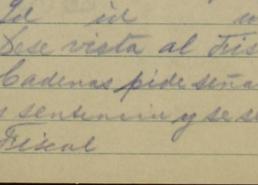 Id id
Dese vista al Fis
Cadenas pide seña
sentencia y se se
Fiscal